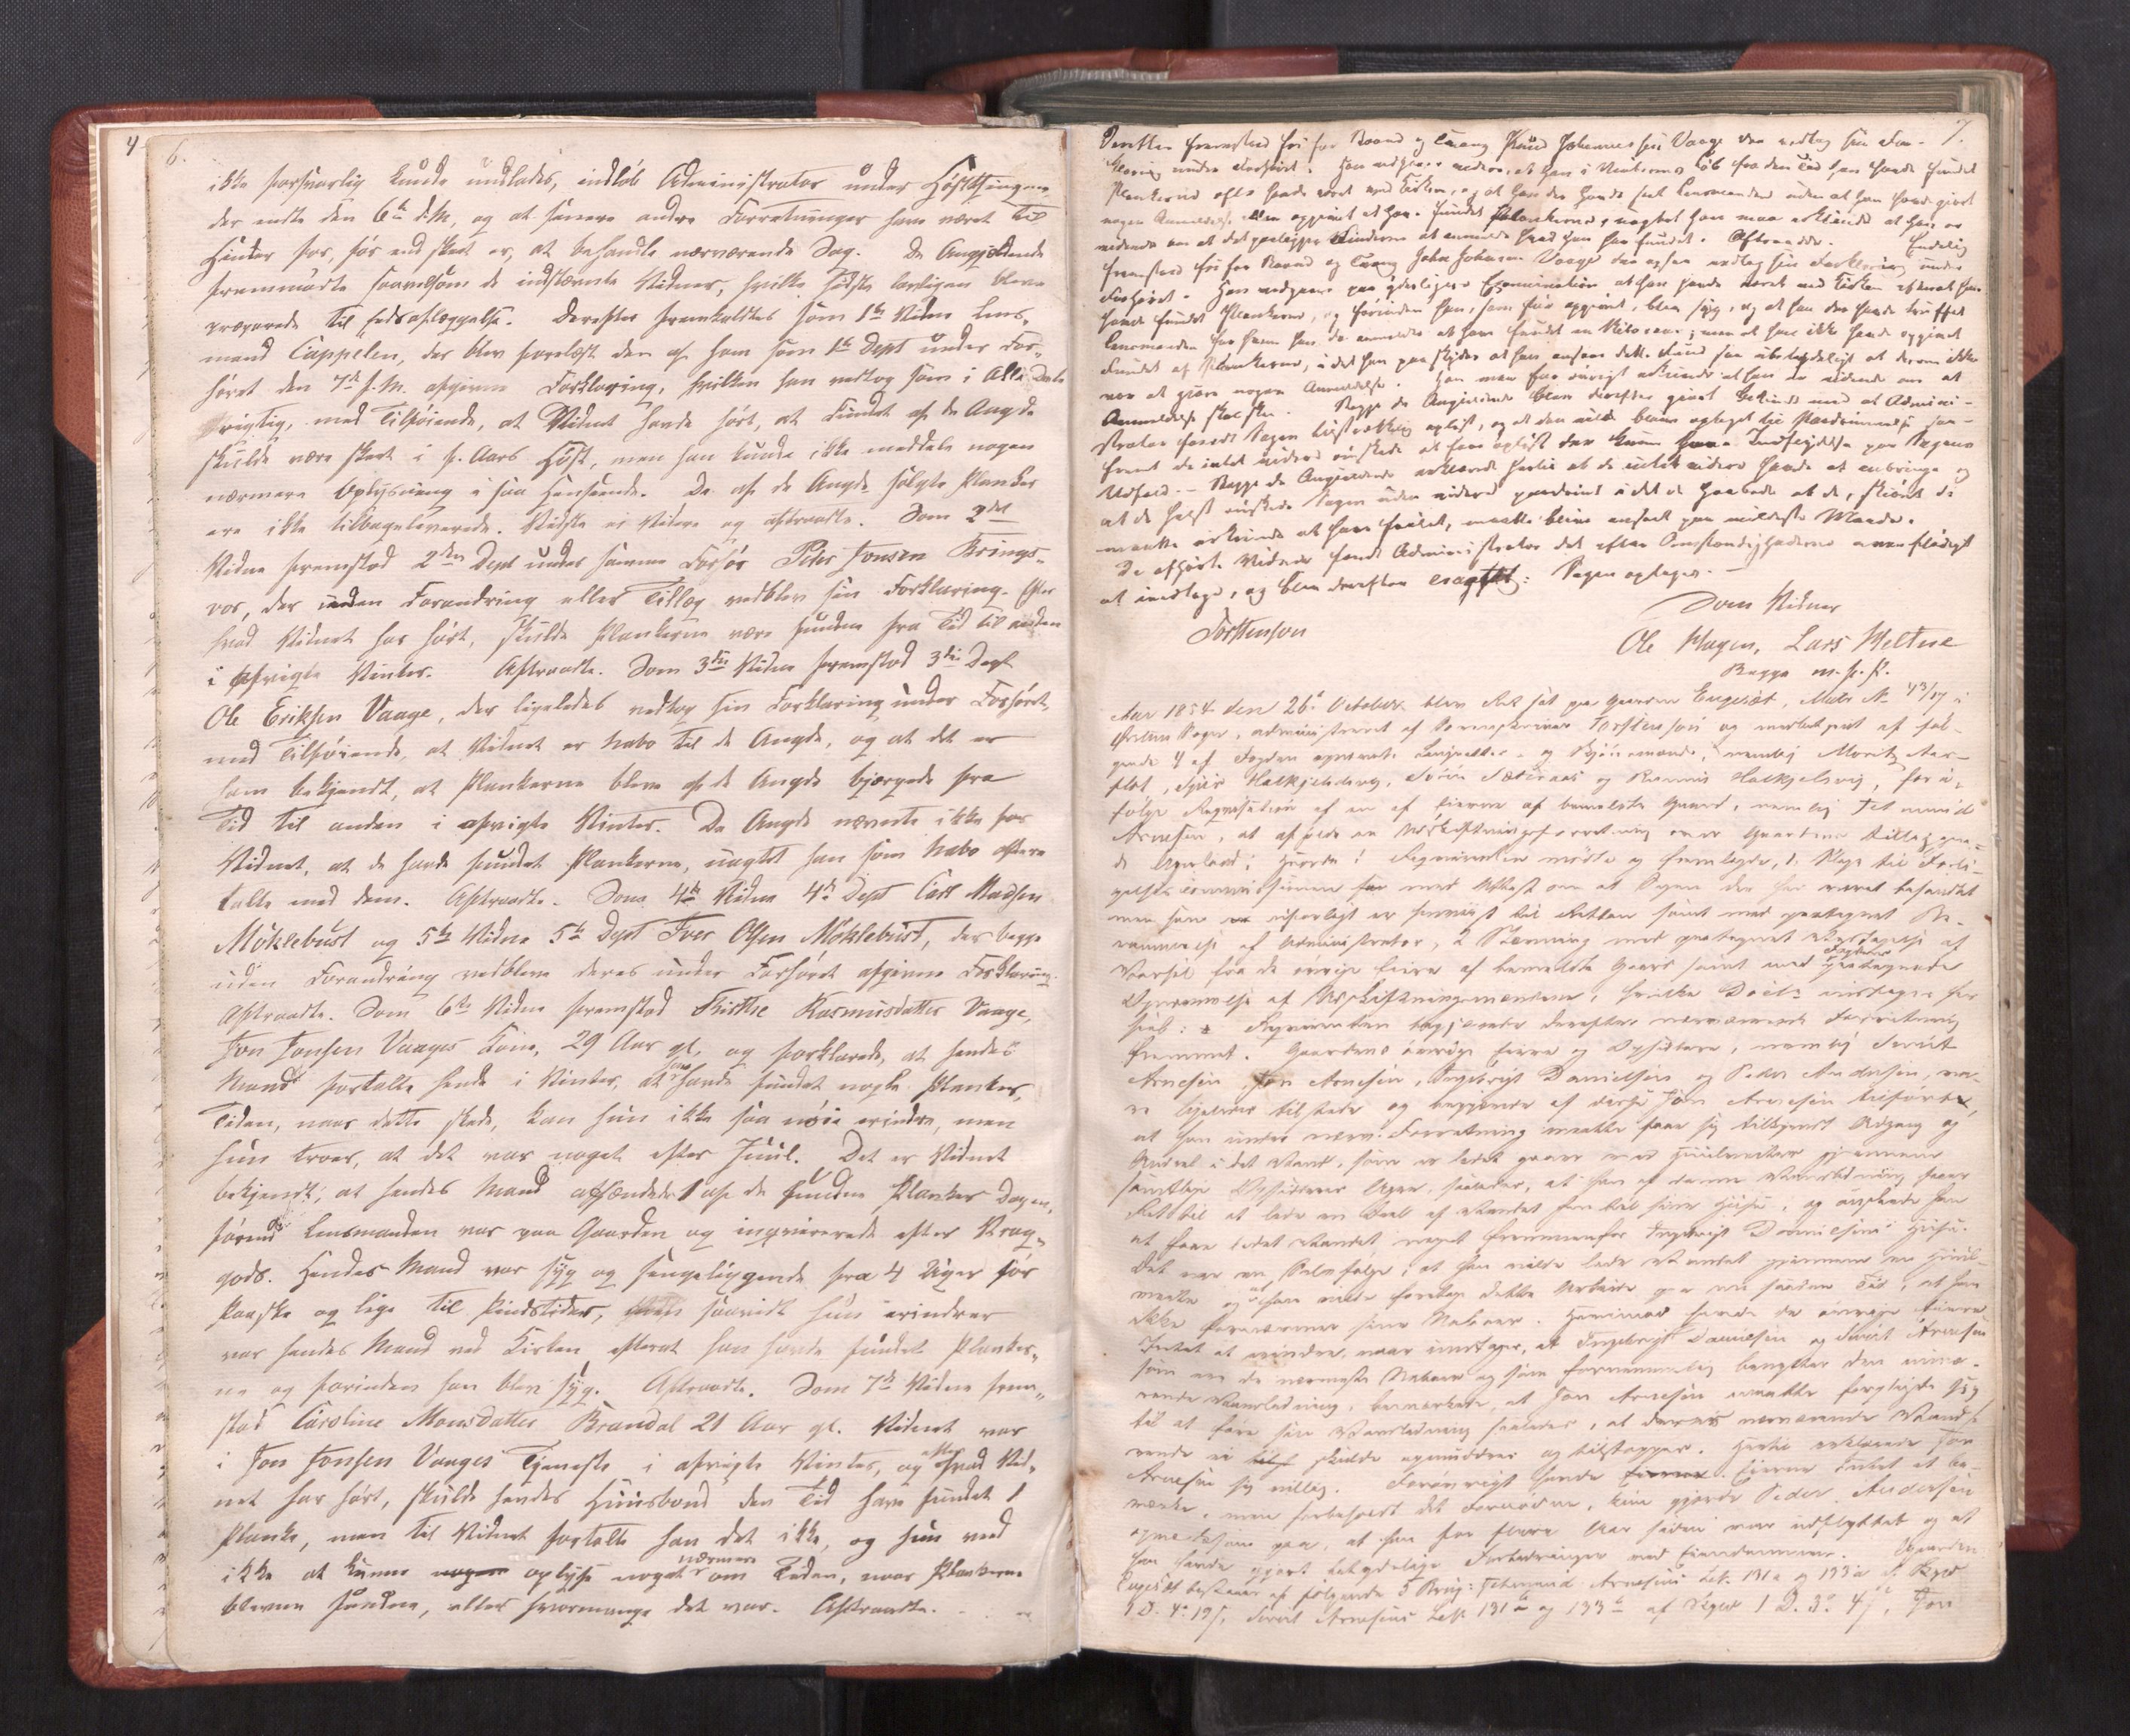 6.
ikke forsvarlig kunde undlades, indløb Administrator under Høstthingene
der endte den 6te d.M., og at senere andre Forretninger have været til
Hinder for, før end skeet er, at behandle nærværende Sag. De Angjældende
fremmødte saavelsom de indstævnte Vidner, hvilke sidste lovligen bleve
præparede til Eedsaflæggelse. Derefter fremkaldtes som 1te Vidne Lens-
mand Cappelen, der blev forelæst den af ham som 1te Dept under For-
høret den 7de f.M. afgivne Forklaring, hvilken han vedtog som i Alle Dele
rigtig, med Tilføiende, at Vidnet havde hørt, at Fundet af de Angde
skulde være skeet i f. Aars Høst, men han kunde ikke meddele nogen
nærmere Oplysning i saa Henseende. De af de Angde solgte Planker
ere ikke tilbageleverede. Vidste ei Videre og aftraadte. Som 2det
Vidne fremstod 2den Dept under samme Forhør Peter Jonsen Krings-
vor, der uden Forandring eller Tillæg vedblev sin Forklaring. Efter
hvad Vidnet har hørt, skulde Plankerne være fundne fra Tid til anden
i afvigte Vinter. Aftraadte. Som 3die Vidne fremstod 3die Dept
Ole Eriksen Vaage, der ligeledes vedtog sin Forklaring under Forhøret,
med Tilføiende, at Vidnet er Nabo til de Angde, og at det er
ham bekjendt, at Plankerne bleve af de Angde bjærgede fra
Tid til anden i afvigte Vinter. De Angde nævnte ikke for
Vidnet, at de havde fundet Plankerne, uagtet han som Nabo oftere
talte med dem. Aftraadte. Som 4de Vidne 4de Dept Carl Madsen
Möklebust og 5te Vidne 5te Dept Iver Olsen Möklebust, der begge
uden Forandring vedbleve deres under Forhøret afgivne Forklaring.
Aftraadte. Som 6te Vidne fremstod Rasmusdatter Vaage,
Jon Jonsen Vaages Kone, 29 Aar gl, og forklarede, at hendes
Mand fortalte hende i Vinter, at han havde fundet nogle Planker,
Tiden, naar dette skede, kan hun ikke saa nøie erindre, men
hun troer, at det var noget efter Juul. Det er Vidnet
bekjendt, at hendes Mand afhændede 1 af de fundne Planker Dagen,
førend Lensmanden var paa Gaarden og inqvirerede efter Vrag-
gods. Hendes Mand var syg og sengeliggende fra 4 Uger før
Paaske og lige til Pindstider, saavidt hun erindrer
var hendes Mand ved Kirken efterat han havde fundet Planker-
ne og forinden han blev syg. Aftraadte. Som 7de Vidne frem-
stod Caroline Monsdatter Brandal 21 Aar gl. Vidnet var
i Jon Jonsen Vaages Tjeneste i afvigte Vinter, og efter hvad Vid-
net har hørt, skulde hendes Huusbond den Tid have fundet 1
Planke, men til Vidnet fortalte han det ikke, og hun ved
ikke at kunne oplyse noget nærmere om Tiden, naar Plankerne
bleven fundne, eller hvormange det var. Aftraadte.
7.
Derefter fremstod fri for Baand og Tvang Knud Johannessen Vaage der vedtog sin For-
klaring under Forhøret. Han vedgaaer videre, at han i Vinterens Løb fra den Tid, han havde fundet
Plankerne ofte havde været ved Kirken, og at han der havde seet Lensmanden uden at han havde gjort
nogen Anmeldelse
vidende om at det paalægger Finderen at anmelde hvad han har fundet. Aftraadte. Endelig
fremstod fri for Baand og Tvang Johannes Vaage der ogsaa vedtog sin Forklaring under
Forhøret. Han vedgaaer paa yderligere Examination at han havde været ved Kirken efterat han
havde fundet Plankerne, og forinden han, som før opgivet, blev syg, og at han der havde truffet
Lensmanden
Fundet af Plankerne, idet han paaskyder at han ansaae dette Fund saa ubetydeligt at derom ikke
var at gjøre nogen Anmeldelse. Han maa for øvrigt erkjende at han er vidende om at
Anmeldelse skal skee. Begge de Angjældende bleve derefter gjort bekjendt med at Admini-
strator fandt Sagen tilstrækkelig oplyst, og at den vilde blive optaget til Paadømmelse saa-
fremt de intet videre ønskede at faae oplyst der kunde have Indflydelse paa Sagens
Udfald. Begge de Angjældende erklærede hertil at de intet videre havde at anbringe og
at de helst ønskede Sagen uden videre paadømt idet de haabede at de, skiønt de
maatte erkjende at have feilet, maatte blive anseet paa mildeste Maade.
De afhørte Vidner fandt Administrator det efter Omstændighederne overflødigt
at eedtage, og blev derefter eragtet: Sagen optages.
Torstenson
Som Vidner
Ole Hagen, Lars Meltne
Begge m.f.P.
Aar 1854 den 26de October blev Ret sat paa Gaarden Engesæt, Matr. No 43/17 i
Ørsten Sogn, administreret af Sorenskriver Torstenson og medbetjent af føl-
gende 4 af Fogden opnævnte Laugrettes- og Skjønsmænd, nemlig Moritz Aar-
flot, Hovkjelsvig, Sætrenæs og Rasmus Hovkjelsvig, for i-
følge Reqvisition af en af Eierne af bemeldte Gaard, nemlig Tetmund
Arnesen, at afholde en Udskiftningsforretning over Gaardens tillæggen-
de Reqvirenten mødte og fremlagde, 1. Klage til Forli-
gelsescommissionen med Attest om at Sagen der har været behandlet
men som er henviist til Retten samt med paategnet Be-
rammelse af Administrator, 2 Stævning med paategnet Vedtagelse af
Varsel fra de øvrige Eiere af bemeldte Gaard samt med Fogdens paategnede
Opnævnelse af Udskiftningsmændene, hvilke Docter indtages her
saal: Reqvirenten begjærede derefter nærværende Forretning
fremmet. Gaardens øvrige Eiere og Opsiddere, nemlig Sivert
Arnesen, Jon Arnesen, Ingebrigt Danielsen og Peder Andersen, va-
re ligeledes tilstede og begjærede af disse Jon Arnesen tilført,
at han under nærv. Forretning maatte faae sig tilkjendt Adgang og
Andeel i det Vand, som er ledet gjennem
samtlige Opsidderes Agre saaledes, at han af denne Vandledning faaer
Ret til at lede en Deel af Vandet frem til sine Huse, og ønskede han
at faae ledet Vandet noget fremmenfor Ingebrigt Danielsens Huse.
Det var en Selvfølge, at han vilde lede Vandet gjennem en
og at han vilde foretage dette Arbeide paa en saadan Tid, at han
ikke fornærmer sine Naboer. Herimod havde de øvrige Eiere
Intet at erindre, naar undtages, at Ingebrigt Danielsen og Sivert Arnesen
som ere de nærmeste Naboer og som fornemmelig benytter den nuvæ-
rende Vandledning, bemærkede, at Jon Arnesen maatte forpligte sig
til at føre sin Vandledning saaledes, at derved nærværende Vand-
rende ei skulde opmuddres og tilstoppes. Hertil erklærede Jon
Arnesen sig villig. Forøvrigt havde Eierne Intet at be-
mærke, men forbeholdt det Fornødne, kun gjorde Peder Andersen
opmærksom paa, at han for flere Aar siden var udflyttet og at
han havde gjort betydelige Forbedringer ved Eiendommen. Gaarden
Engesæt bestaaer af følgende 5 Brug: Tetmund Arnesens Lb. 131a og 133a af Skyld
1 D. 4 19/, Sivert Arnesens Lb. 131b og 133b af Skyld 1 D. 3 4/, Jon